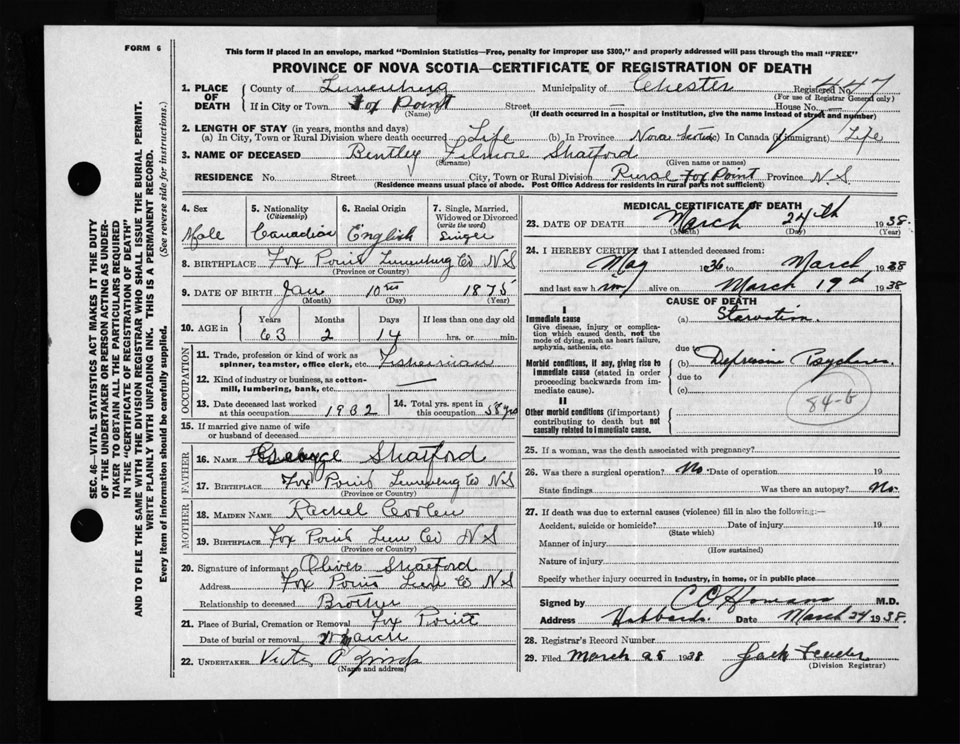 FORM 6
This form if placed in an envelope, marked "Dominion Statistics—Free, penalty for improper use $300," and properly addressed will pass through the mail "FREE"
PROVINCE OF NOVA SCOTIA—CERTIFICATE OF REGISTRATION OF DEATH
SEC. 46—VITAL STATISTICS ACT MAKES IT THE DUTY
OF THE UNDERTAKER OR PERSON ACTING AS UNDER-
TAKER TO OBTAIN ALL THE PARTICULARS REQUIRED
IN THE "CERTIFICATE OF REGISTRATION OF DEATH"
AND TO FILE THE SAME WITH THE DIVISION REGISTRAR WHO SHALL ISSUE THE BURIAL PERMIT.
WRITE PLAINLY WITH UNFADING INK. THIS IS A PERMANENT RECORD.
Every item of information should be carefully supplied. (See reverse side for instructions.)
1. PLACE OF DEATH County of Lunenburg Municipality of Chester Registered No. 447
(For use of Registrar General only)
If in City or Town Fox Point Street — House No.
(Name) (If death occurred in a hospital or institution, give the name instead of street and number)
2. LENGTH OF STAY (in years, months and days)
(a) In City, Town or Rural Division where death occurred Life (b) In Province Nova Scotia (c) In Canada (if immigrant) Life
3. NAME OF DECEASED Bentley Filmore Shatford
(Surname) (Given name or names)
RESIDENCE No. Street City, Town or Rural Division Rural Fox Point Province N.S.
(Residence means usual place of abode. Post Office Address for residents in rural parts not sufficient)
4. Sex Male
5. Nationality (Citizenship) Canadian
6. Racial Origin English
7. Single, Married, Widowed or Divorced (write the word) Single
8. BIRTHPLACE Fox Point Lunenburg Co N.S
(Province or Country)
9. DATE OF BIRTH Jan 10th 1875
(Month) (Day) (Year)
10. AGE in Years Months Days If less than one day old
63 2 14 hrs. or min.
OCCUPATION
11. Trade, profession or kind of work as spinner, teamster, office clerk, etc. Fisherman
12. Kind of industry or business, as cotton-mill, lumbering, bank, etc. —
13. Date deceased last worked at this occupation 1932
14. Total yrs. spent in this occupation 38 yrs
15. If married give name of wife or husband of deceased
FATHER
16. NAME George Shatford
17. BIRTHPLACE Fox Point Lunenburg Co N.S
(Province or Country)
MOTHER
18. MAIDEN NAME Rachel Coolen
19. BIRTHPLACE Fox Point Lun Co N.S
(Province or Country)
20. Signature of informant Oliver Shatford
Address Fox Point Lun Co N.S
Relationship to deceased Brother
21. Place of Burial, Cremation or Removal Fox Point
Date of burial or removal March
22. UNDERTAKER
(Name and address)
MEDICAL CERTIFICATE OF DEATH
23. DATE OF DEATH March 24th 1938.
(Month) (Day) (Year)
24. I HEREBY CERTIFY that I attended deceased from:
May 1936 to March 1938
and last saw him alive on March 19th 1938
CAUSE OF DEATH
I
Immediate cause
Give disease, injury or complication which caused death, not the mode of dying, such as heart failure, asphyxia, asthenia, etc.
(a) Starvation.
due to
Morbid conditions, if any, giving rise to immediate cause (stated in order proceeding backwards from immediate cause).
(b) Depressive Psychoses
due to
(c)
84-b
II
Other morbid conditions (if important) contributing to death but not causally related to immediate cause.
25. If a woman, was the death associated with pregnancy?
26. Was there a surgical operation? No Date of operation 19
State findings Was there an autopsy? No.
27. If death was due to external causes (violence) fill in also the following:—
Accident, suicide or homicide? Date of injury 19
(State which)
Manner of injury
(How sustained)
Nature of injury
Specify whether injury occurred in industry, in home, or in public place
Signed by M.D.
Address Hubbards. Date March 24 1938.
28. Registrar's Record Number
29. Filed March 25 1938 Jack
(Division Registrar)